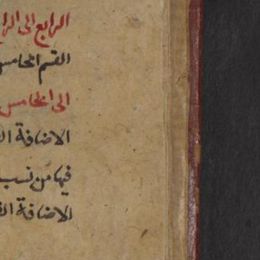 الرابع الى الرا
القسم الخامس
الى الخامس
الاضافة ال
فيها من نسب
الاضافة ال